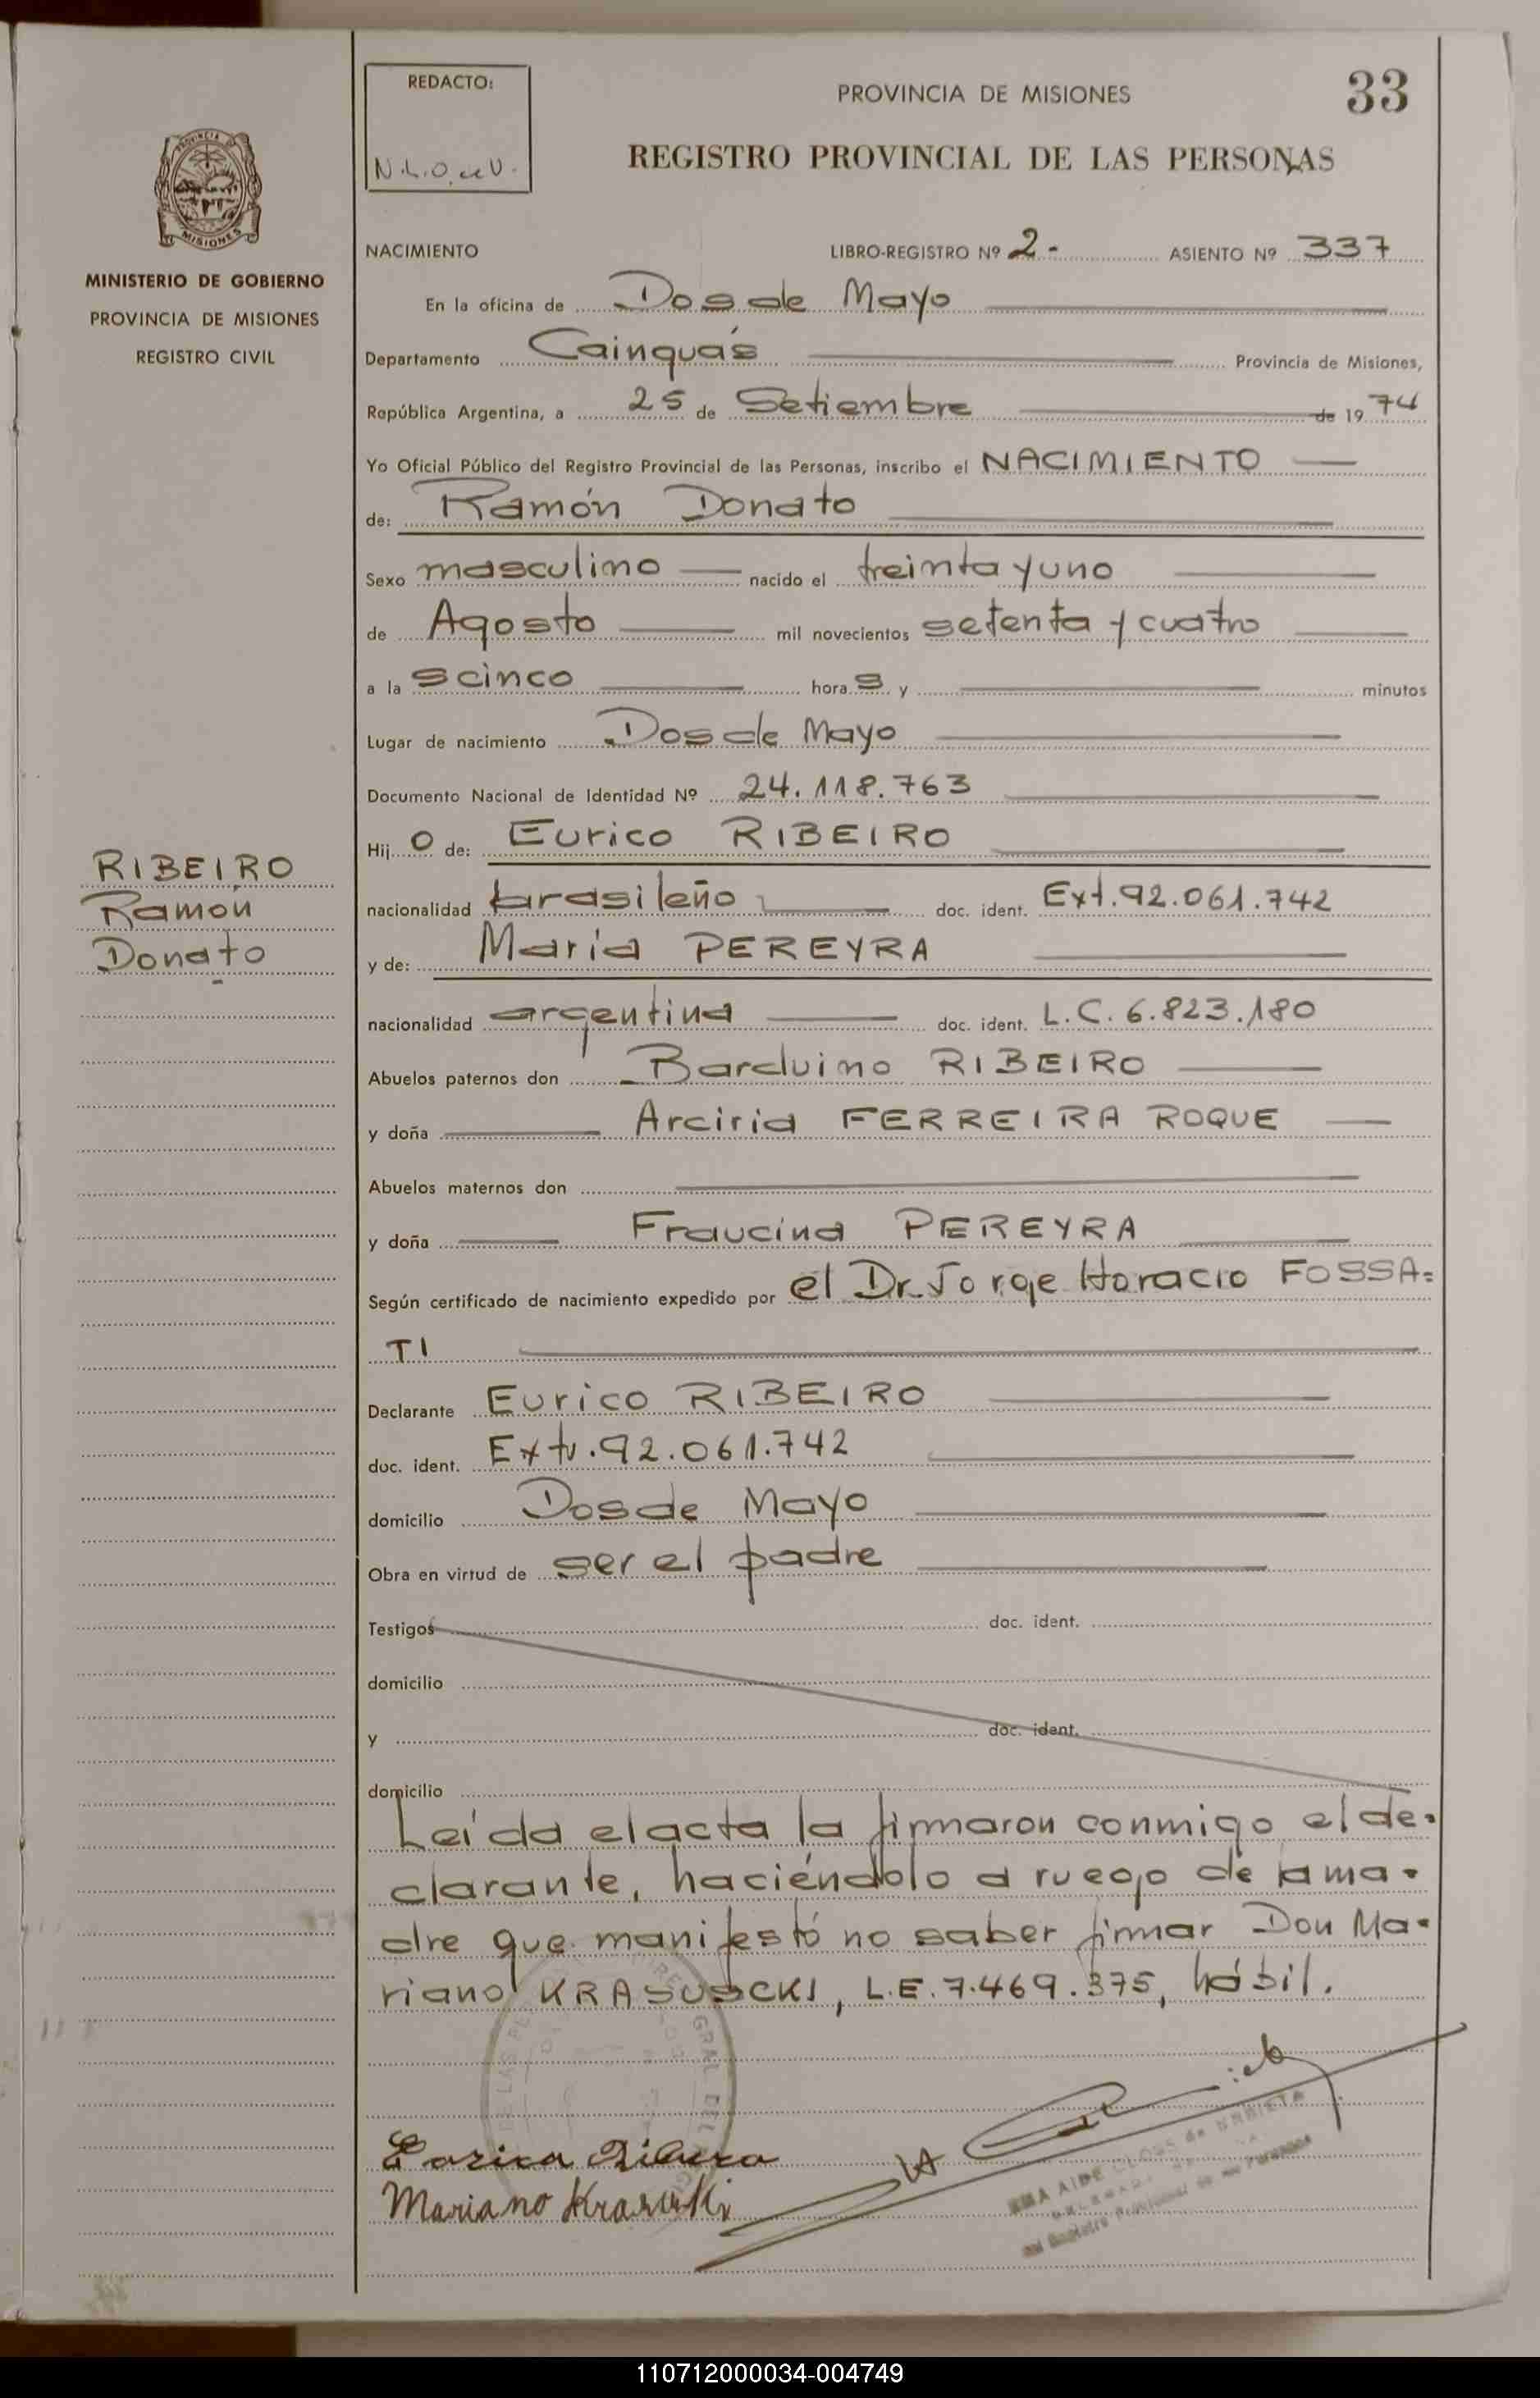 REDACTO:
N.L.O. de V.
PROVINCIA DE MISIONES
33
REGISTRO PROVINCIAL DE LAS PERSONAS
MISIONES
MINISTERIO DE GOBIERNO
PROVINCIA DE MISIONES
REGISTRO CIVIL
NACIMIENTO LIBRO-REGISTRO Nº 2- ASIENTO Nº 337
En la oficina de Dos de Mayo
Departamento Cainguás Provincia de Misiones,
República Argentina, a 25 de Setiembre de 1974
Yo Oficial Público del Registro Provincial de las Personas, inscribo el NACIMIENTO
de: Ramón Donato
Sexo masculino nacido el treinta y uno
de Agosto mil novecientos setenta y cuatro
a la s cinco hora s y minutos
Lugar de nacimiento Dos de Mayo
Documento Nacional de Identidad Nº 24.118.763
Hij o de: Eurico RIBEIRO
RIBEIRO
Ramón
Donato
nacionalidad brasileño doc. ident. Ext. 92.061.742
y de: María PEREYRA
nacionalidad argentina doc. ident. L.C. 6.823.180
Abuelos paternos don Barduino RIBEIRO
y doña Arciria FERREIRA ROQUE
Abuelos maternos don
y doña Francina PEREYRA
Según certificado de nacimiento expedido por el Dr. Jorge Horacio FOSSA=
TI
Declarante Eurico RIBEIRO
doc. ident. Extr. 92.061.742
domicilio Dos de Mayo
Obra en virtud de ser el padre
Testigos doc. ident.
domicilio
y doc. ident.
domicilio
Leída el acta la firmaron conmigo el de-
clarante, haciéndolo a ruego de la ma-
dre que manifestó no saber firmar Don Ma-
riano KRASUSCKI, L.E. 7.469.375, hábil.
Mariano
110712000034-004749